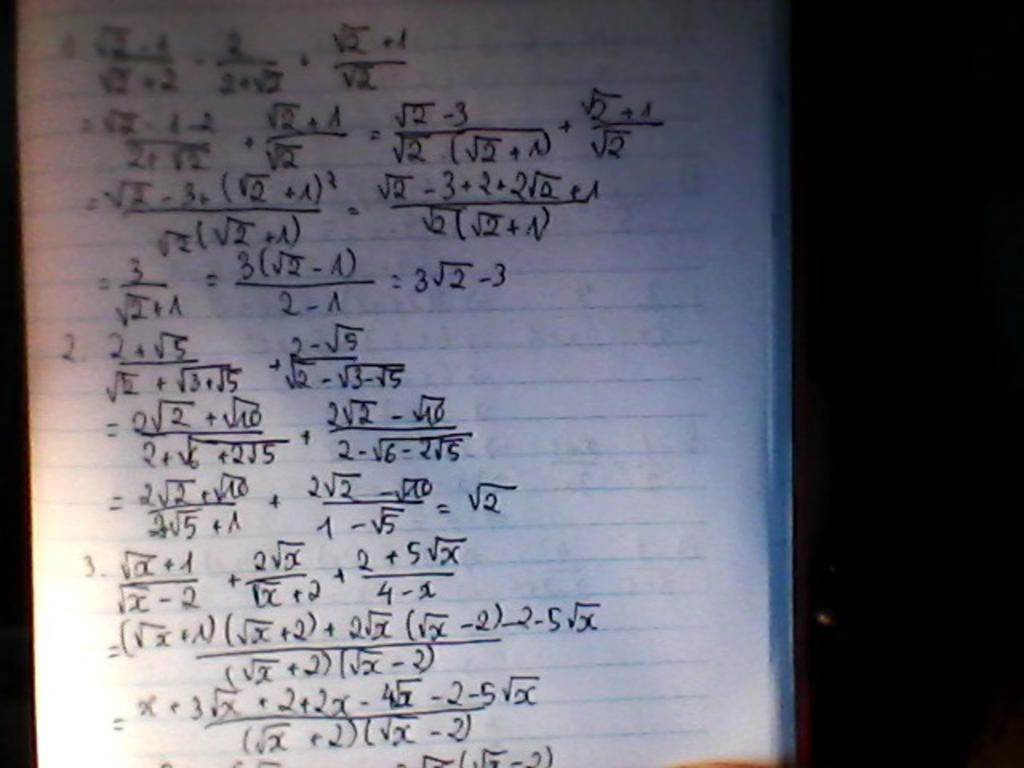 1. (√2 - 1)/(√2 + 2) - 2/(2+√2) + (√2 + 1)/√2
= (√2 - 1 - 2)/(2+√2) + (√2 + 1)/√2 = (√2 - 3)/(√2 (√2 + 1)) + (√2 + 1)/√2
= (√2 - 3 + (√2 + 1)²)/(√2 (√2 + 1)) = (√2 - 3 + 2 + 2√2 + 1)/(√2(√2+1))
= 3/(√2+1) = 3(√2 - 1)/(2 - 1) = 3√2 - 3
2. (2 + √5)/(√2 + √(3+√5)) + (2 - √5)/(√2 - √(3-√5))
= (2√2 + √10)/(2+√(6+2√5)) + (2√2 - √10)/(2-√(6-2√5))
= (2√2 + √10)/( √5 + 1) + (2√2 - √10)/(1 - √5) = √2
3. (√x + 1)/(√x - 2) + 2√x/(√x + 2) + (2 + 5√x)/(4 - x)
= ((√x + 1)(√x + 2) + 2√x (√x - 2) - 2 - 5√x)/((√x + 2)(√x - 2))
= (x + 3√x + 2 + 2x - 4√x - 2 - 5√x)/((√x + 2)(√x - 2))